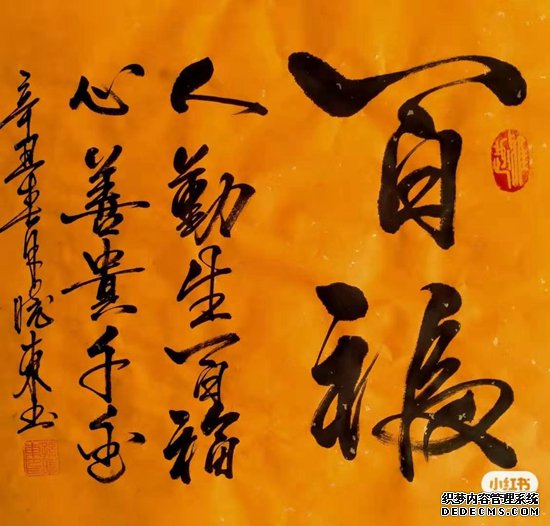 百福
人勤生百福
心善貴千金
辛丑春月晓東书
小红书
织梦内容管理系统
DEDECMS.COM